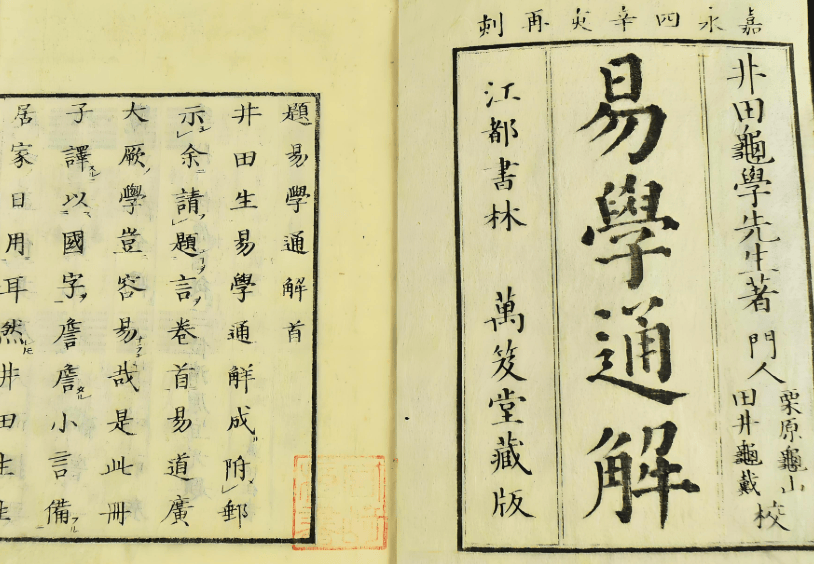 嘉永四辛亥再刻
井田龜學先生著
門人
栗原龜山
田井龜戴
校
易學通解
江都書林 萬笈堂藏版
題易學通解首
井田生易學通解成附郵
示余請題言卷首易道廣
大厥學豈容易哉是此冊
子譯以國字詹詹小言備
居家日用耳然井田生